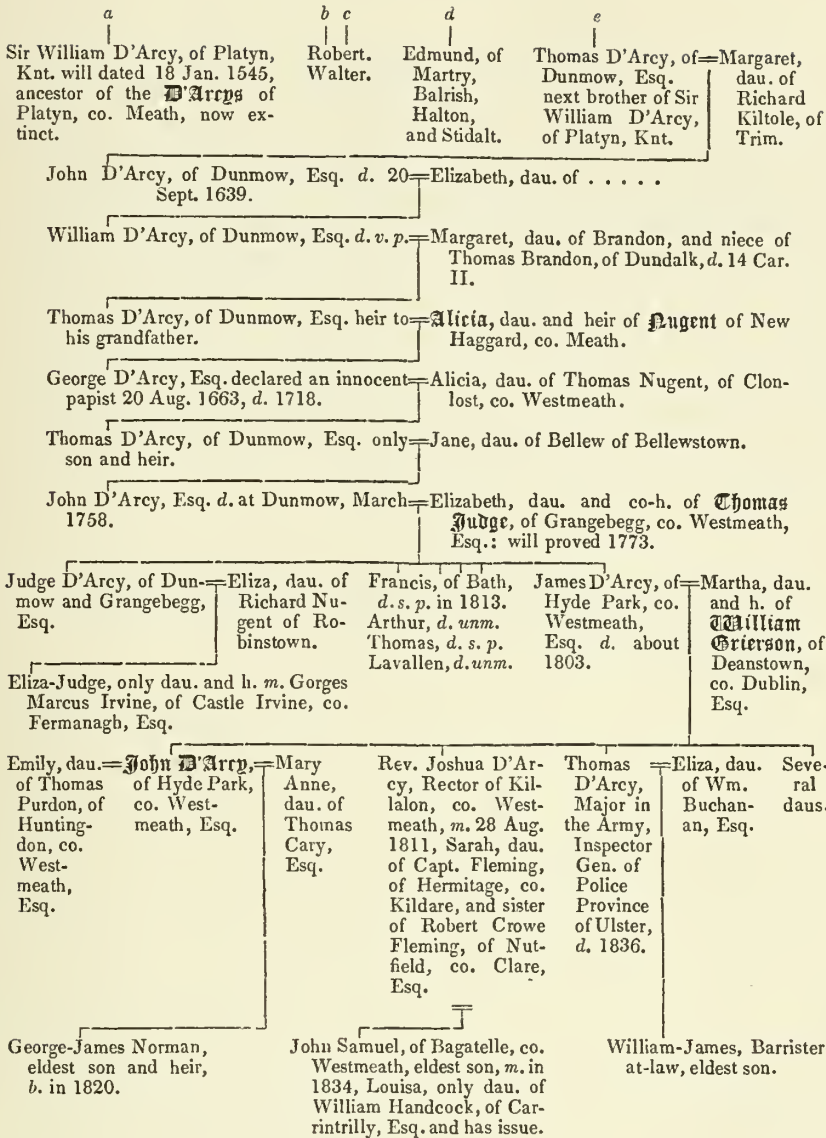 a
b c
d
e
Sir William D'Arcy, of Platyn,
Knt. will dated 18 Jan. 1545,
ancestor of the D'Arcys of
Platyn, co. Meath, now ex-
tinct.
Robert.
Walter.
Edmund, of
Martry,
Balrish,
Halton,
and Stidalt.
Thomas D'Arcy, of
Dunmow, Esq.
next brother of Sir
William D'Arcy,
of Platyn, Knt.
Margaret,
dau. of
Richard
Kiltole, of
Trim.
John D'Arcy, of Dunmow, Esq. d. 20
Sept. 1639.
Elizabeth, dau. of . . . . .
William D'Arcy, of Dunmow, Esq. d. v. p.
Margaret, dau. of Brandon, and niece of
Thomas Brandon, of Dundalk, d. 14 Car.
II.
Thomas D'Arcy, of Dunmow, Esq. heir to
his grandfather.
Alicia, dau. and heir of Nugent of New
Haggard, co. Meath.
George D'Arcy, Esq. declared an innocent
papist 20 Aug. 1663, d. 1718.
Alicia, dau. of Thomas Nugent, of Clon-
lost, co. Westmeath.
Thomas D'Arcy, of Dunmow, Esq. only
son and heir.
Jane, dau. of Bellew of Bellewstown.
John D'Arcy, Esq. d. at Dunmow, March
1758.
Elizabeth, dau. and co-h. of Thomas
Judge, of Grangebegg, co. Westmeath,
Esq.: will proved 1773.
Judge D'Arcy, of Dun-
mow and Grangebegg,
Esq.
Eliza, dau. of
Richard Nu-
gent of Ro-
binstown.
Francis, of Bath,
d. s. p. in 1813.
Arthur, d. unm.
Thomas, d. s. p.
Lavallen, d. unm.
James D'Arcy, of
Hyde Park, co.
Westmeath,
Esq. d. about
1803.
Martha, dau.
and h. of
William
Grierson, of
Deanstown,
co. Dublin,
Esq.
Eliza-Judge, only dau. and h. m. Gorges
Marcus Irvine, of Castle Irvine, co.
Fermanagh, Esq.
Emily, dau.
of Thomas
Purdon, of
Hunting-
don, co.
West-
meath,
Esq.
John D'Arcy,
of Hyde Park,
co. West-
meath, Esq.
Mary
Anne,
dau. of
Thomas
Cary,
Esq.
Rev. Joshua D'Ar-
cy, Rector of Kil-
lalon, co. West-
meath, m. 28 Aug.
1811, Sarah, dau.
of Capt. Fleming,
of Hermitage, co.
Kildare, and sister
of Robert Crowe
Fleming, of Nut-
field, co. Clare,
Esq.
Thomas
D'Arcy,
Major in
the Army,
Inspector
Gen. of
Police
Province
of Ulster,
d. 1836.
Eliza, dau.
of Wm.
Buchan-
an, Esq.
Seve-
ral
daus.
George-James Norman,
eldest son and heir,
b. in 1820.
John Samuel, of Bagatelle, co.
Westmeath, eldest son, m. in
1834, Louisa, only dau. of
William Handcock, of Car-
rintrilly, Esq. and has issue.
William-James, Barrister
at-law, eldest son.